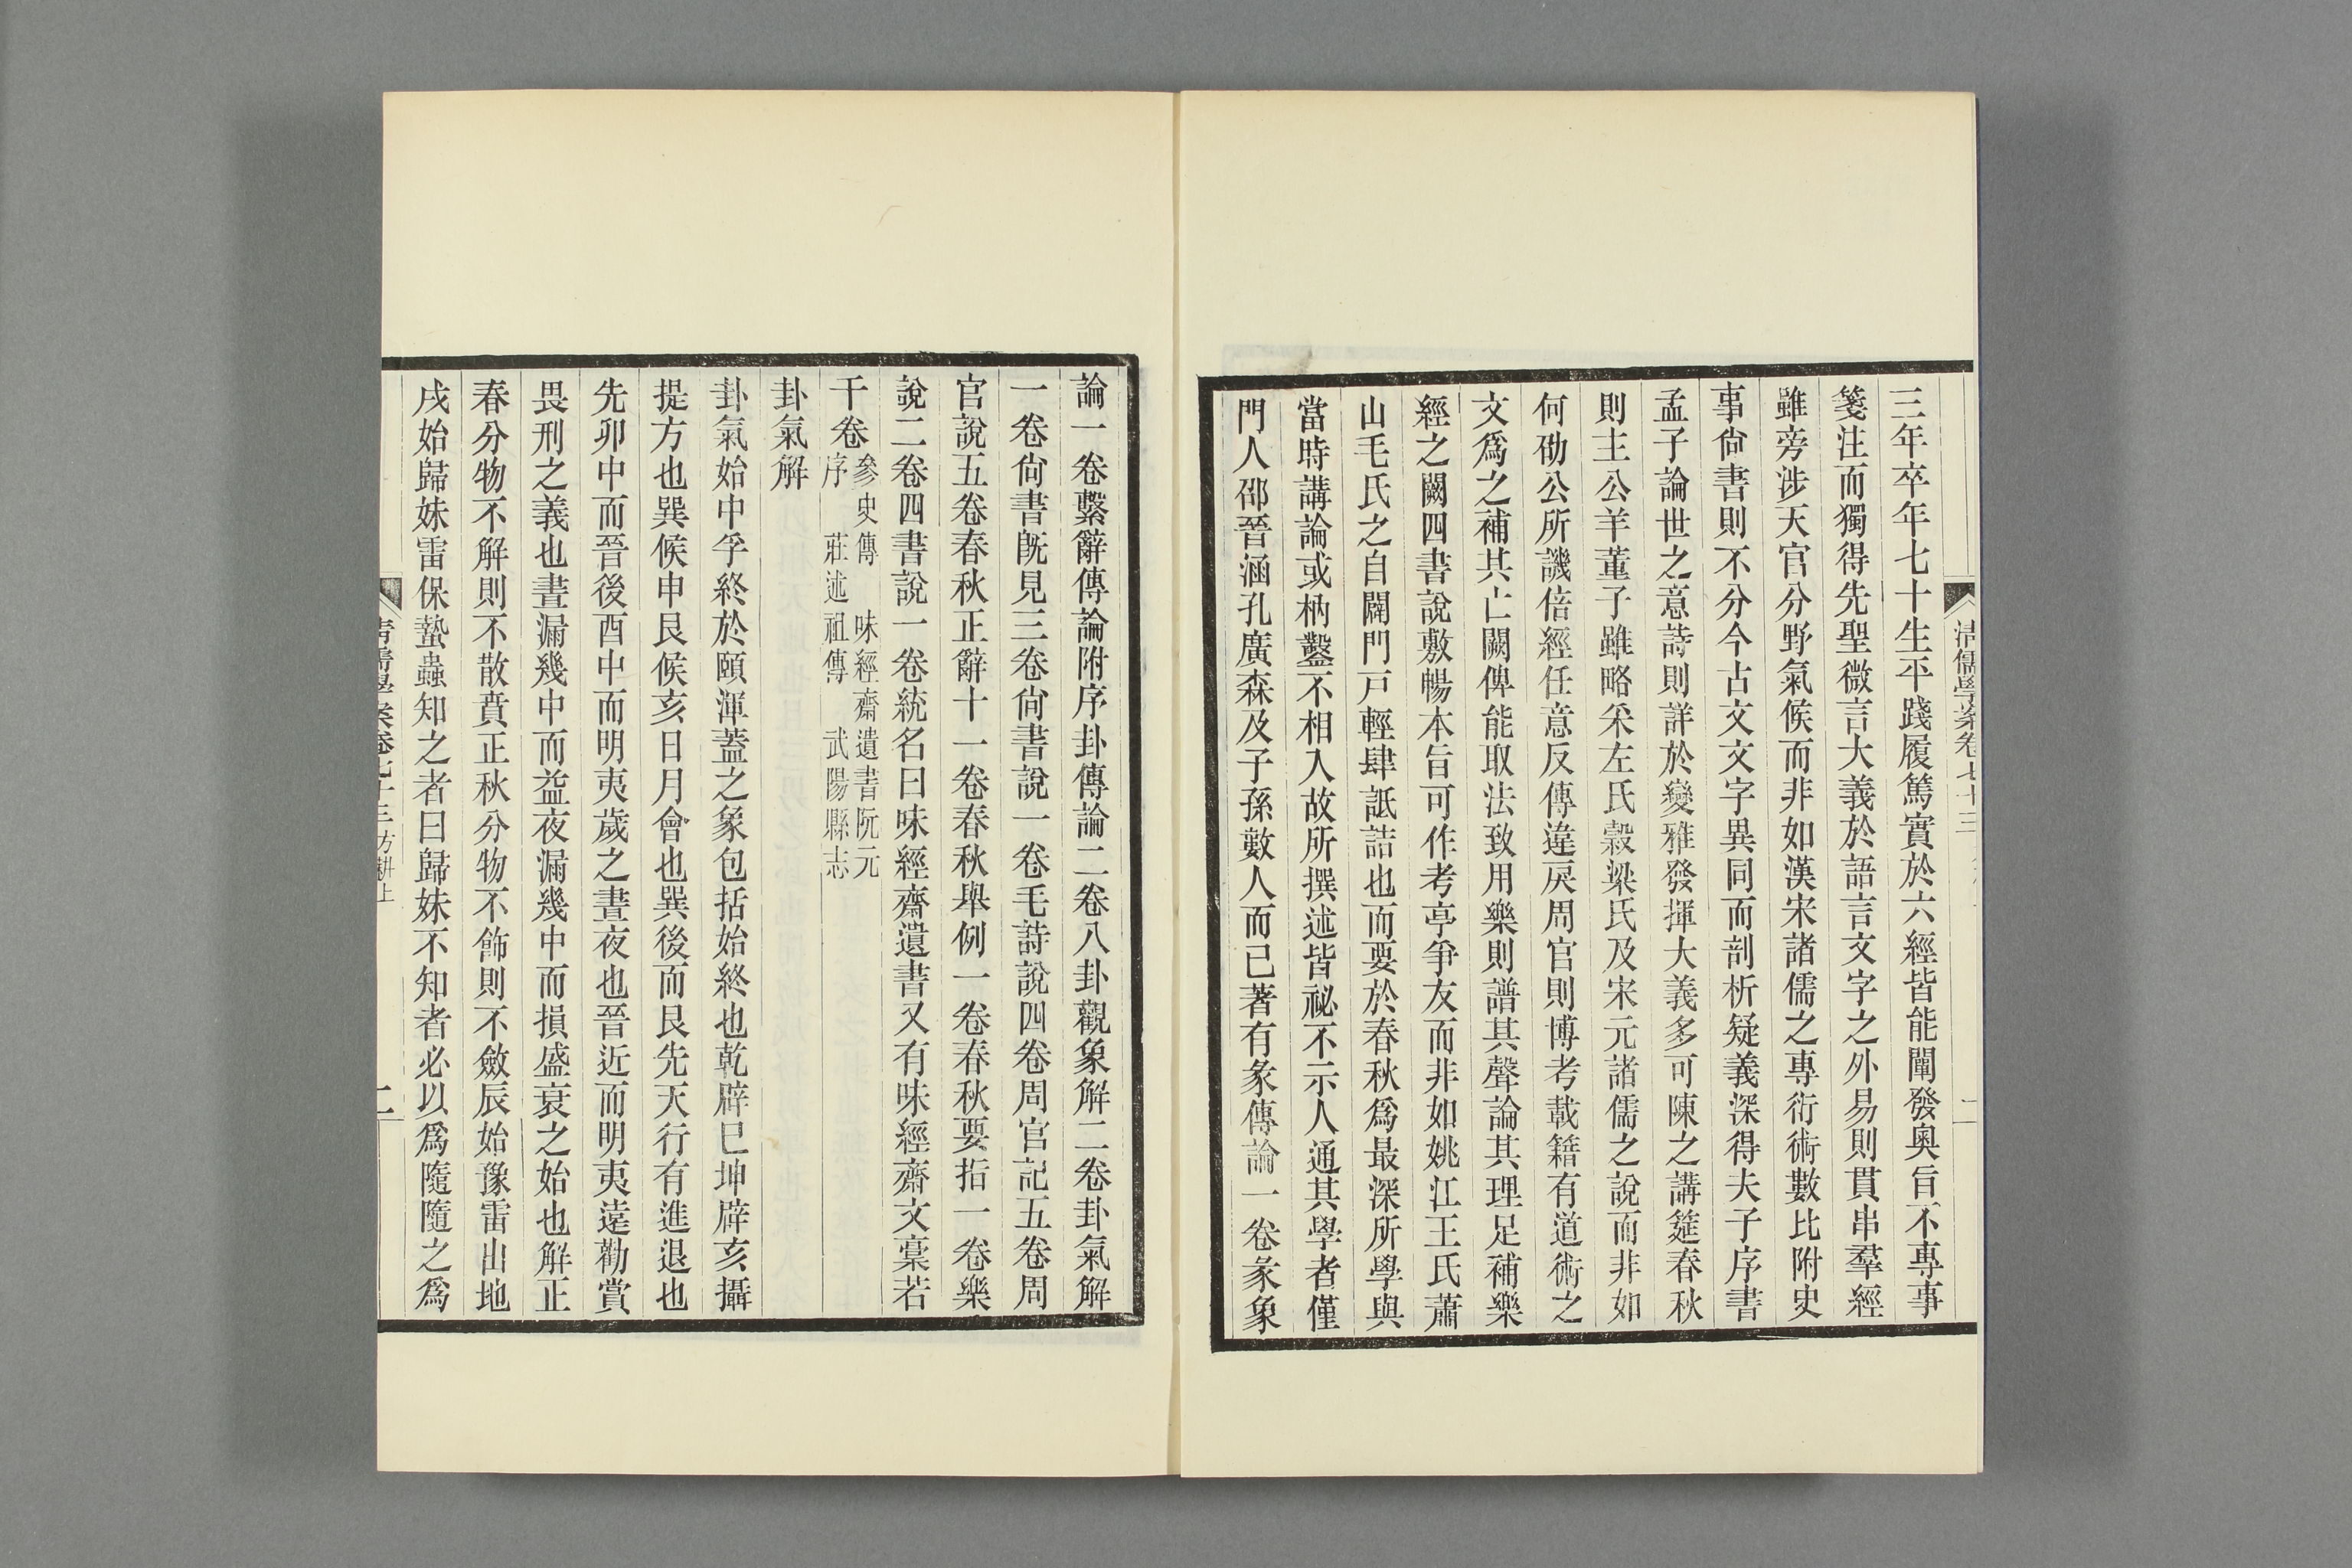 清儒學案卷七十三
二
三年卒年七十生平踐履篤實於六經皆能闡發奧旨不專事
箋注而獨得先聖微言大義於語言文字之外易則貫串羣經
雖旁涉天官分野氣候而非如漢宋諸儒之專衍術數比附史
事尙書則不分今古文文字異同而剖析疑義深得夫子序書
孟子論世之意詩則詳於變雅發揮大義多可陳之講筵春秋
則主公羊董子雖略釆左氏穀梁氏及宋元諸儒之說而非如
何劭公所譏倍經任意反傳違戾周官則博考載籍有道術之
文爲之補其亡闕俾能取法致用樂則譜其聲論其理足補樂
經之闕四書說敷暢本旨可作考亭爭友而非如姚江王氏蕭
山毛氏之自闢門戸輕肆詆詰也而要於春秋爲最深所學與
當時講論或枘鑿不相入故所撰述皆祕不示人通其學者僅
門人邵晉涵孔廣森及子孫數人而已著有彖傳論一卷彖象
論一卷繫辭傳論附序卦傳論二卷八卦觀象解二卷卦氣解
一卷尙書旣見三卷尙書說一卷毛詩說四卷周官記五卷周
官說五卷春秋正辭十一卷春秋舉例一卷春秋要指一卷樂
說二卷四書說一卷統名曰味經齋遺書又有味經齋文稾若
干卷參史傳　味經齋遺書阮元
序　莊述祖傳　武陽縣志
卦氣解
卦氣始中孚終於頤渾蓋之象包括始終也乾辟巳坤辟亥攝
提方也巽候申艮候亥日月會也巽後而艮先天行有進退也
先卯中而晉後酉中而明夷歲之晝夜也晉近而明夷遠勸賞
畏刑之義也晝漏幾中而益夜漏幾中而損盛衰之始也解正
春分物不解則不散賁正秋分物不飾則不斂辰始豫雷出地
戌始歸妹雷保蟄蟲知之者曰歸妹不知者必以爲隨隨之爲
清儒學案卷七十三方耕上
二